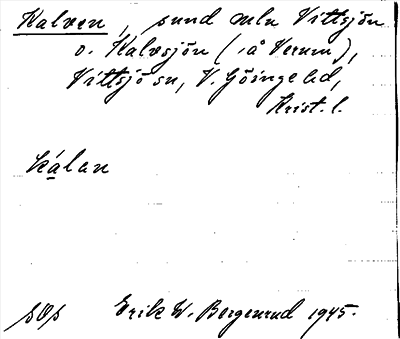 Kalven, sund mln Vittsjön
o. Kalvsjön (i å Verum),
Vittsjö sn, V. Göinge hd,
Krist. l.
kálan
sOs Erik W. Bergenrud 1945.